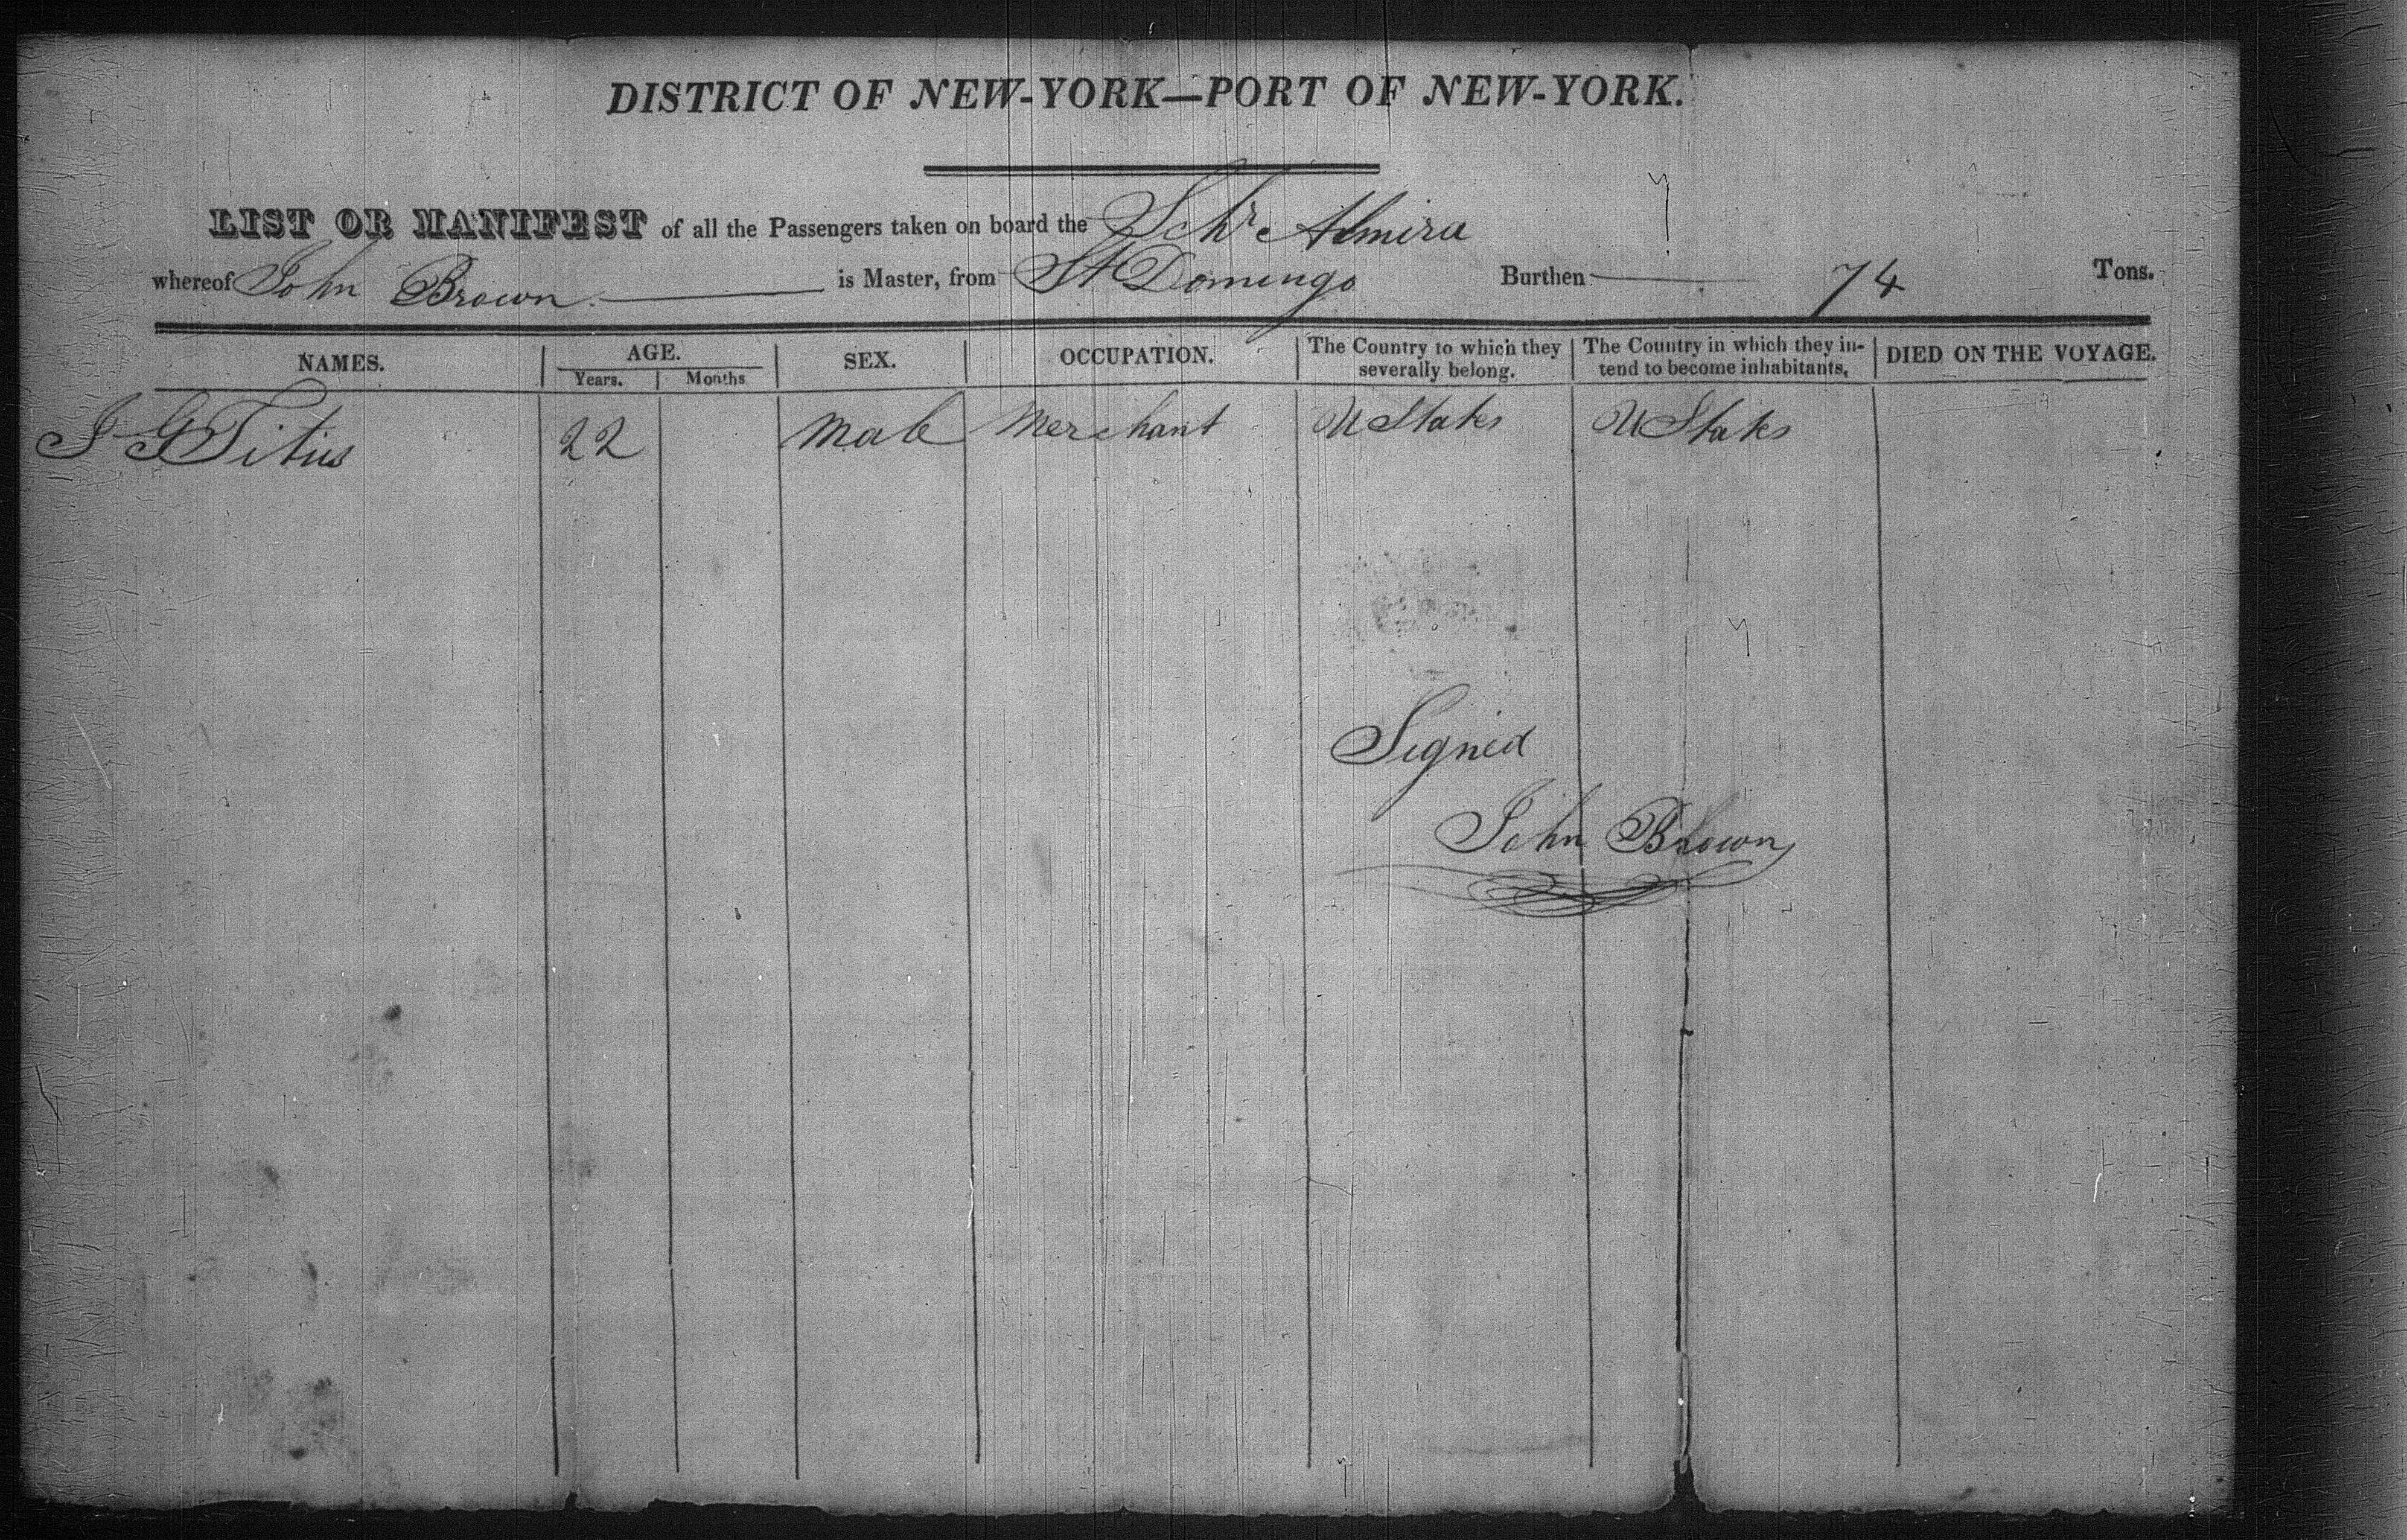 DISTRICT OF NEW-YORK—PORT OF NEW-YORK.
LIST OR MANIFEST of all the Passengers taken on board the Schr Almira
whereof John Brown. is Master, from St Domingo Burthen 74 Tons.
NAMES. AGE. SEX. OCCUPATION. The Country to which they severally belong. The Country in which they in- tend to become inhabitants. DIED ON THE VOYAGE.
Years. Months
J G Titus 22 Male Merchant U States U States
Signed
John Brown